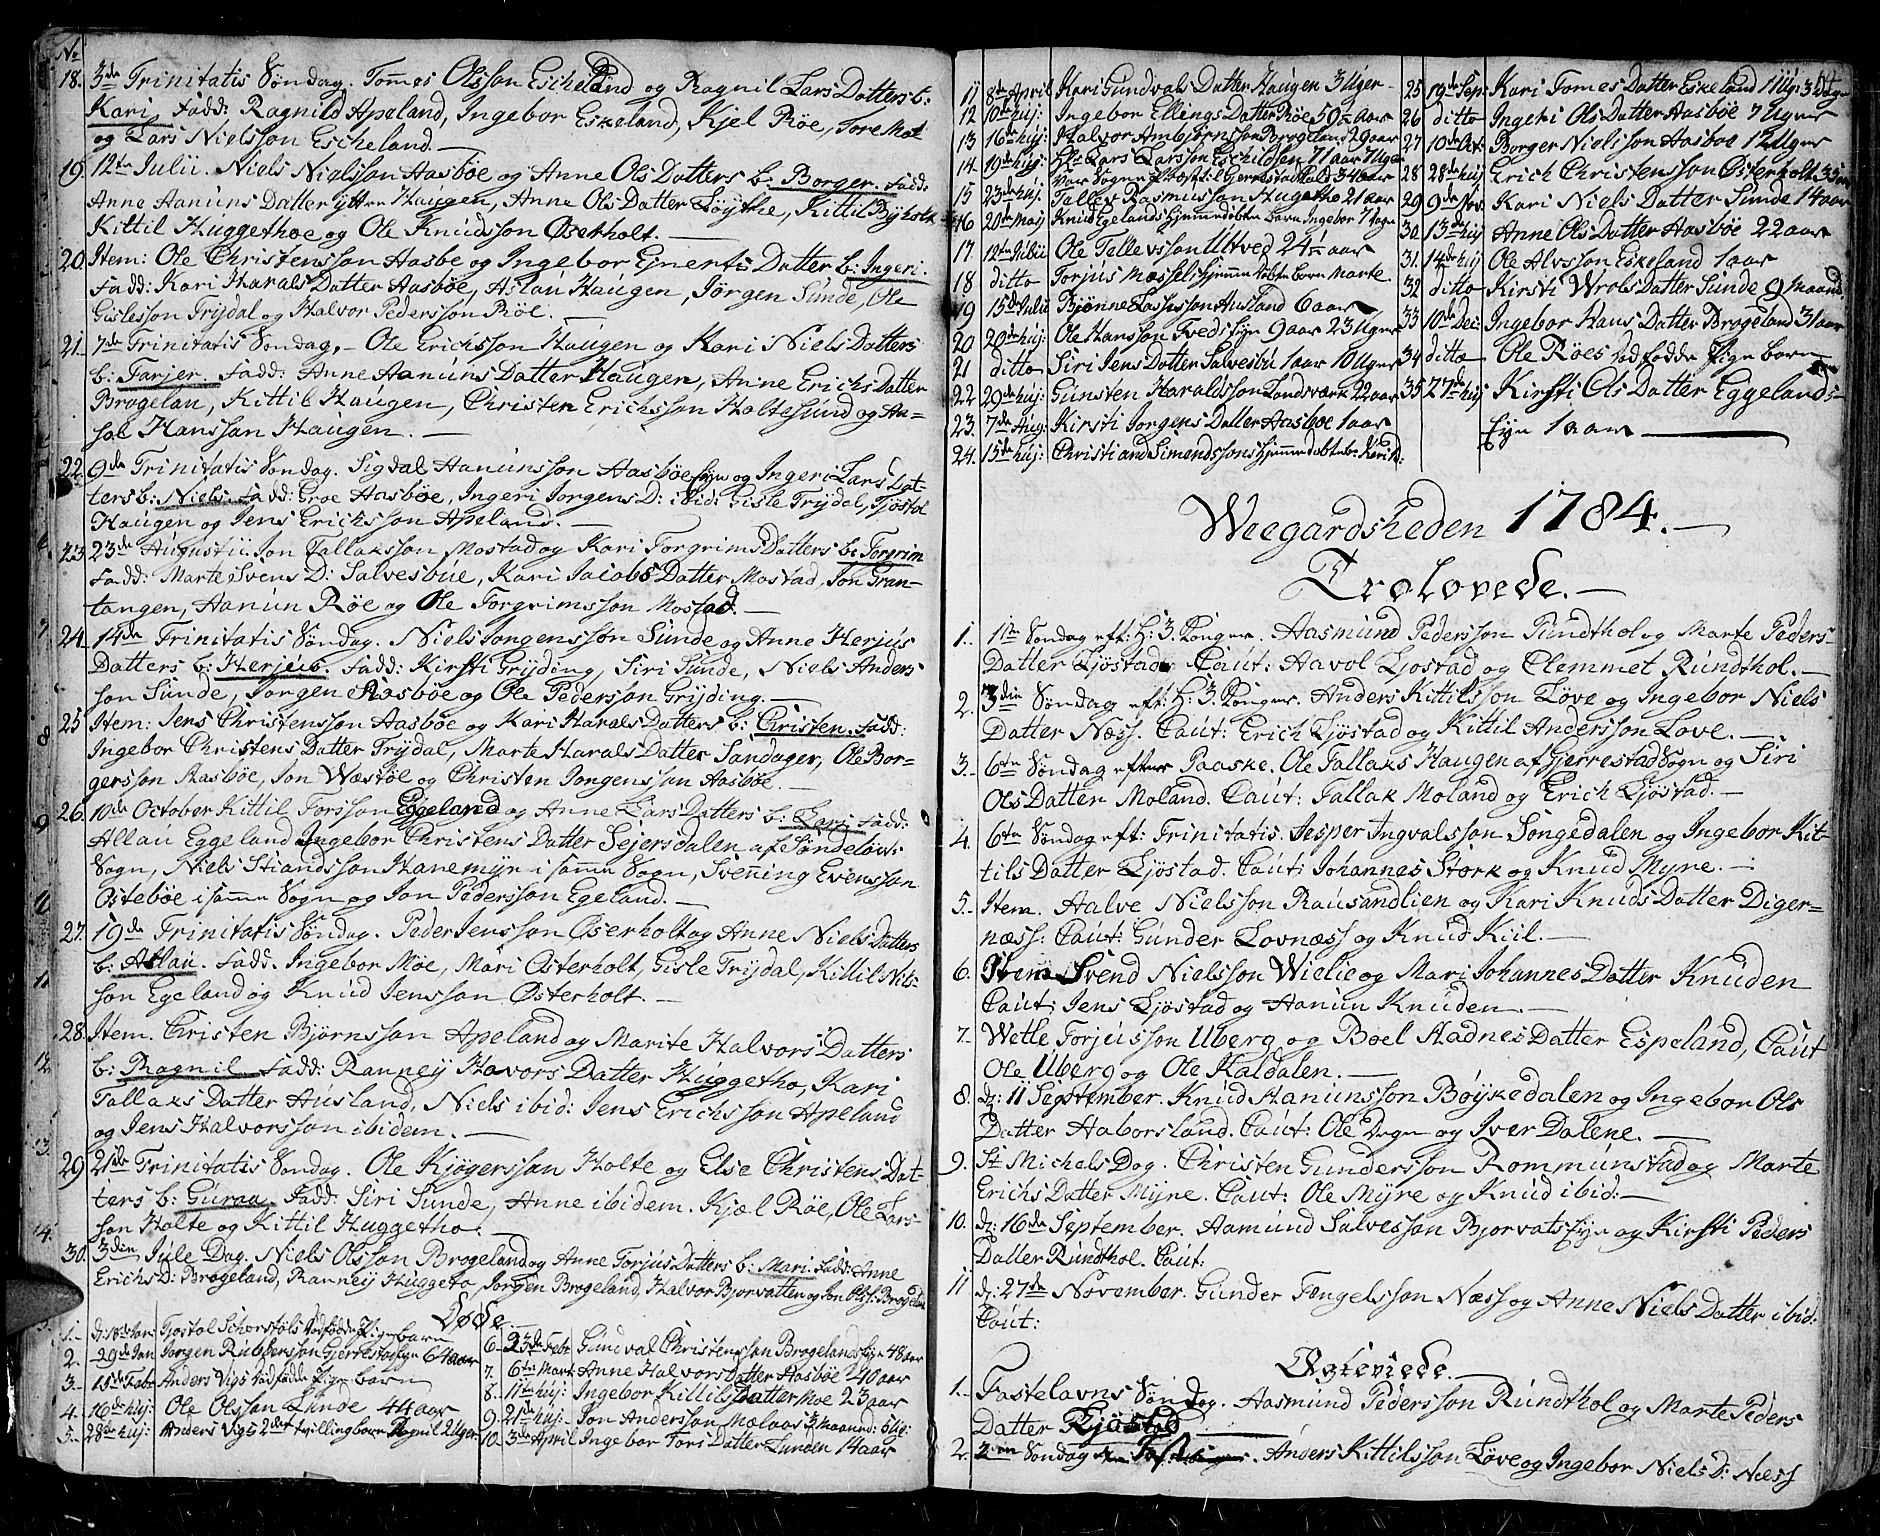 No
18. 3de Trinitatis Søndag. Tomes Olsson Escheland og Ragnil Lars Datters b:
Kari. Fadd: Ragnild Apeland, Ingebor Eskeland, Kjel Røe, Tore Moe
og Lars Nielsson Escheland. —
19. 12te Julii. Niels Nielsson Aasbøe og Anne Ols Datters b: Borger. Fadd:
Anne Aanuns Datter ytter Haugen, Anne Ols Datter Løythe, Kittil Byholt
Kittil Huggethoe og Ole Knudsson Øserholt. —
20. Item: Ole Christensson Aasbe og Ingebor Ejnerts Datter b: Ingeri.
Fadd: Kari Harals Datter Aasbøe, Aslau Haugen, Jørgen Sunde, Ole
Gislesson Trydal og Halvor Pedersson Røe. —
21. 7de Trinitatis Søndag. Ole Erichsson Haugen og Kari Niels Datters
b: Tarjer. Fadd: Anne Aanuns Datter Haugen, Anne Erichs Datter
Brogelan, Kittil Haugen, Christen Erichsson Holtesund og An-
sol Hansson Haugen. —
22. 9de Trinitatis Søndag. Sigdal Aanunsson Aasbøe Eje og Ingeri Lars Dat-
ters b: Niels. Fadd: Groe Aasbøe, Ingeri Jorgens D: ibid: Gisle Trydal, Tjøstol
Haugen og Jens Erichsson Apeland. —
23. 23de Augustii Jon Tallaksson Mostad og Kari Torgrims Datters b: Torgrim
Fadd: Marte Svens D: Salvesbue, Kari Jacobs Datter Mostad, Jon Gran-
tangen, Aanun Røe og Ole Torgrimsson Mostad. —
24. 14de Trinitatis Søndag. Niels Jongensson Sunde og Anne Herjus
Datters b: Herjus. Fadd: Kirsti Gryding, Siri Sunde, Niels Anders
son Sunde, Jorgen Aasbøe og Ole Pedersson Gryding. —
25. Item: Jens Christensson Aasbøe og Kari Harals Datters b: Christen. Fadd:
Ingebor Christens Datter Trydal, Marte Harals Datter Sandager, Ole Bor-
gersson Aasbøe, Jon Wæstøe og Christen Jongensson Aasbøe. —
26. 10de October Kittil Torsson Eggeland og Anne Lars Datters b: Lars. Fadd:
Allau Eggeland Ingebor Christens Datter Sejersdalen af Søndeløw:
Sogn, Niels Stiandsson Hanemyr i samme Sogn, Svenning Evensson
Ostebøe i samme Sogn og Jon Pedersson Egeland. —
27. 19de Trinitatis Søndag. Peder Jensson Øserholt og Anne Niels Datters
b: Aslau. Fadd. Ingebor Moe, Mari Osterholt, Gisle Trydal, Kittil Nils-
son Egeland og Knud Jensson Østerholt. —
28. Item. Christen Bjørnsson Apeland og Marite Halvors Datters
b: Ragnil. Fadd: Ranney Havors Datter Huggetho, Kari
Tallaks Datter Ausland, Niels ibid: Jens Erichsson Apeland
og Jens Halvorsson ibidem. —
29. 21de Trinitatis Søndag. Ole Kjøgersson Holte og Else Christens Dat-
ters b: Guraa. Fadd: Siri Sunde, Anne ibidem. Kjæl Røe, Ole Lars-
son Holte og Kittil Huggetho. —
30. 3die Jule Dag. Niels Olsson Brogeland og Anne Torjus Datters b: Mari. Fadd: Anne
Erichs D: Brogeland, Ranney Huggeto Jorgen Brogeland, Halvor Bjorvatten og Jon Ols: Brogelan
Døde.
1. Jan Tjostol Schorstøls dødfødde Pige barn
2. 29de Jan Jorgen Rubbersson Gjerrestad 64 aar
3. 15de Febr Anders Vigs dødfødde Pige barn
4. 16de huj: Ole Olsson Lunde 44 aar
5. 28de huj: Anders Vigs 2det tvilling barn Ragnil 2 Uger
6. 23de Febr Gundval Christensson Brogelands Eje 48 aar
7. 6te Mart Anne Halvors Datter Aasbøe 40 aar
8. 11te huj: Ingebor Killils Datter Moe 23 aar
9. 21de huj: Jon Andersson Mælaas 3 Maaned: 6 Ug:
10. 3de April Ingebor Tors Datter Lunden 14 aar
11 8de April Kari Gundvals Datter Haugen 3 Uger
12 10de huj: Ingebor Ellings Datter Røe 59 ½ aar
13 16de huj: Halvor Ambjørnsson Brogeland 29 aar
14. 19de huj: Hr: Lars Larsson Eschildsen 71 aar 7 Uger
var Sogne Præst i Gjerrestad Held 34 aar
15 23de huj. Tallev Rasmusson Hugetho 21 aar
16 20de Maij Knud Egelands Hjemmedøbte barn Ingebor 7 Dage
17 12te Julii Ole Tellevsson Utved 24 ½ aar
18 ditto Torjus Mæssels Hjemme døbte barn Marte
19 15de Julii Bjønne Lassesson Ausland 6 aar
20 20de huj: Ole Hansson Tveds Eje 9 aar 23 Uger
21 ditto Siri Jens Datter Salvesbu 1 aar 10 Uger
22 29de huj: Gunsten Haraldsson Landsværk 22 aar
23. 7de Aug: Kirsti Jorgens Datter Aasbøe 1 aar
24. 15de huj: Christiand Simendssons Hjemmedøbte b:
25 19de Sep: Kari Tomes Datter Eskeland 1 Ug: 3 Dage
26 ditto Ingeri Ols Datter Aasbøe 7 Uger
27 10de Oct: Borger Nielsson Aasbøe 12 Uger
28 28de huj Erich Christensson Østerholt
29 9de Nov: Kari Niels Datter Sunde 14 aar
30. 13de huj Anne Ols Datter Aasbøe 22 aar
31. 14de huj Ole Alvsson Eskeland 1 aar
32 ditto Kirsti Wrols Datter Sunde 9 Maaned
33 10de Dec: Ingebor Hans Datter Brogeland 31 aar
34 ditto Ole Røes dødfødde Pige barn
35 27de huj Kirsti Ols Datter Eggelands-
Eje 1 aar —
Weegardsheden 1784. —
Trolovede. —
1. 1ste Søndag eft: H: 3 Konger. Aasmund Pedersson Rundthol og Marte Peders-
Datter Ljøstad: Caut: Aavol Ljostad og Clemmet Rundthol. —
2. 3die Søndag eft: H: 3. Konger. Anders Kittilsson Løve og Ingebor Niels
Datter Næss. Caut: Erich Ljøstad og Kittil Andersson Love. —
3. 6te Søndag efter Paaske. Ole Tallaks Haugen af Gjerrestad Sogn og Siri
Ols Datter Moland. Caut: Tallak Moland og Erich Ljøstad. —
4. 6te Søndag eft: Trinitatis. Jesper Ingvalsson Songedalen og Ingebor Kit-
tils Datter Ljøstad. Caut: Johannes Stork og Knud Myre. —
5. Item. Aalve Nielsson Rausandlien og Kari Knuds Datter Diger-
næss: Caut: Gunder Lovnæss og Knud Kiil. —
6. Item Svend Nielsson Wielie og Mari Johannes Datter Knuden
Caut: Jens Ljøstad og Aanun Knuden. —
7. Wetle Torjusson Uberg og Boel Aadnes Datter Espeland, Caut
Ole Uberg og Ole Kaldalen. —
8. d: 11 September. Knud Aanunsson Bøykedalen og Ingebor Ols
Datter Aaborsland. Caut: Ole Dogn og Iver Dalene. —
9. St Michels Dag. Christen Gundersson Rommunstad og Marte
Erichs Datter Myre. Caut: Ole Myre og Knud ibid: —
10. d: 16de September. Aamund Salvesson Bjorvats Eje og Kirsti Peders
Datter Rundthol. Caut:
11 d: 27de November. Gunder Tengelsson Næss og Anne Niels Datter ibid:
Caut:
Copulerede. —
1. Fastelavns Søndag. Aasmund Pedersson Rundthol og Marte Peders
Datter Ljøstad —
2. 2den Søndag Anders Kittilsson Løve og Ingebor Niels D: Næss